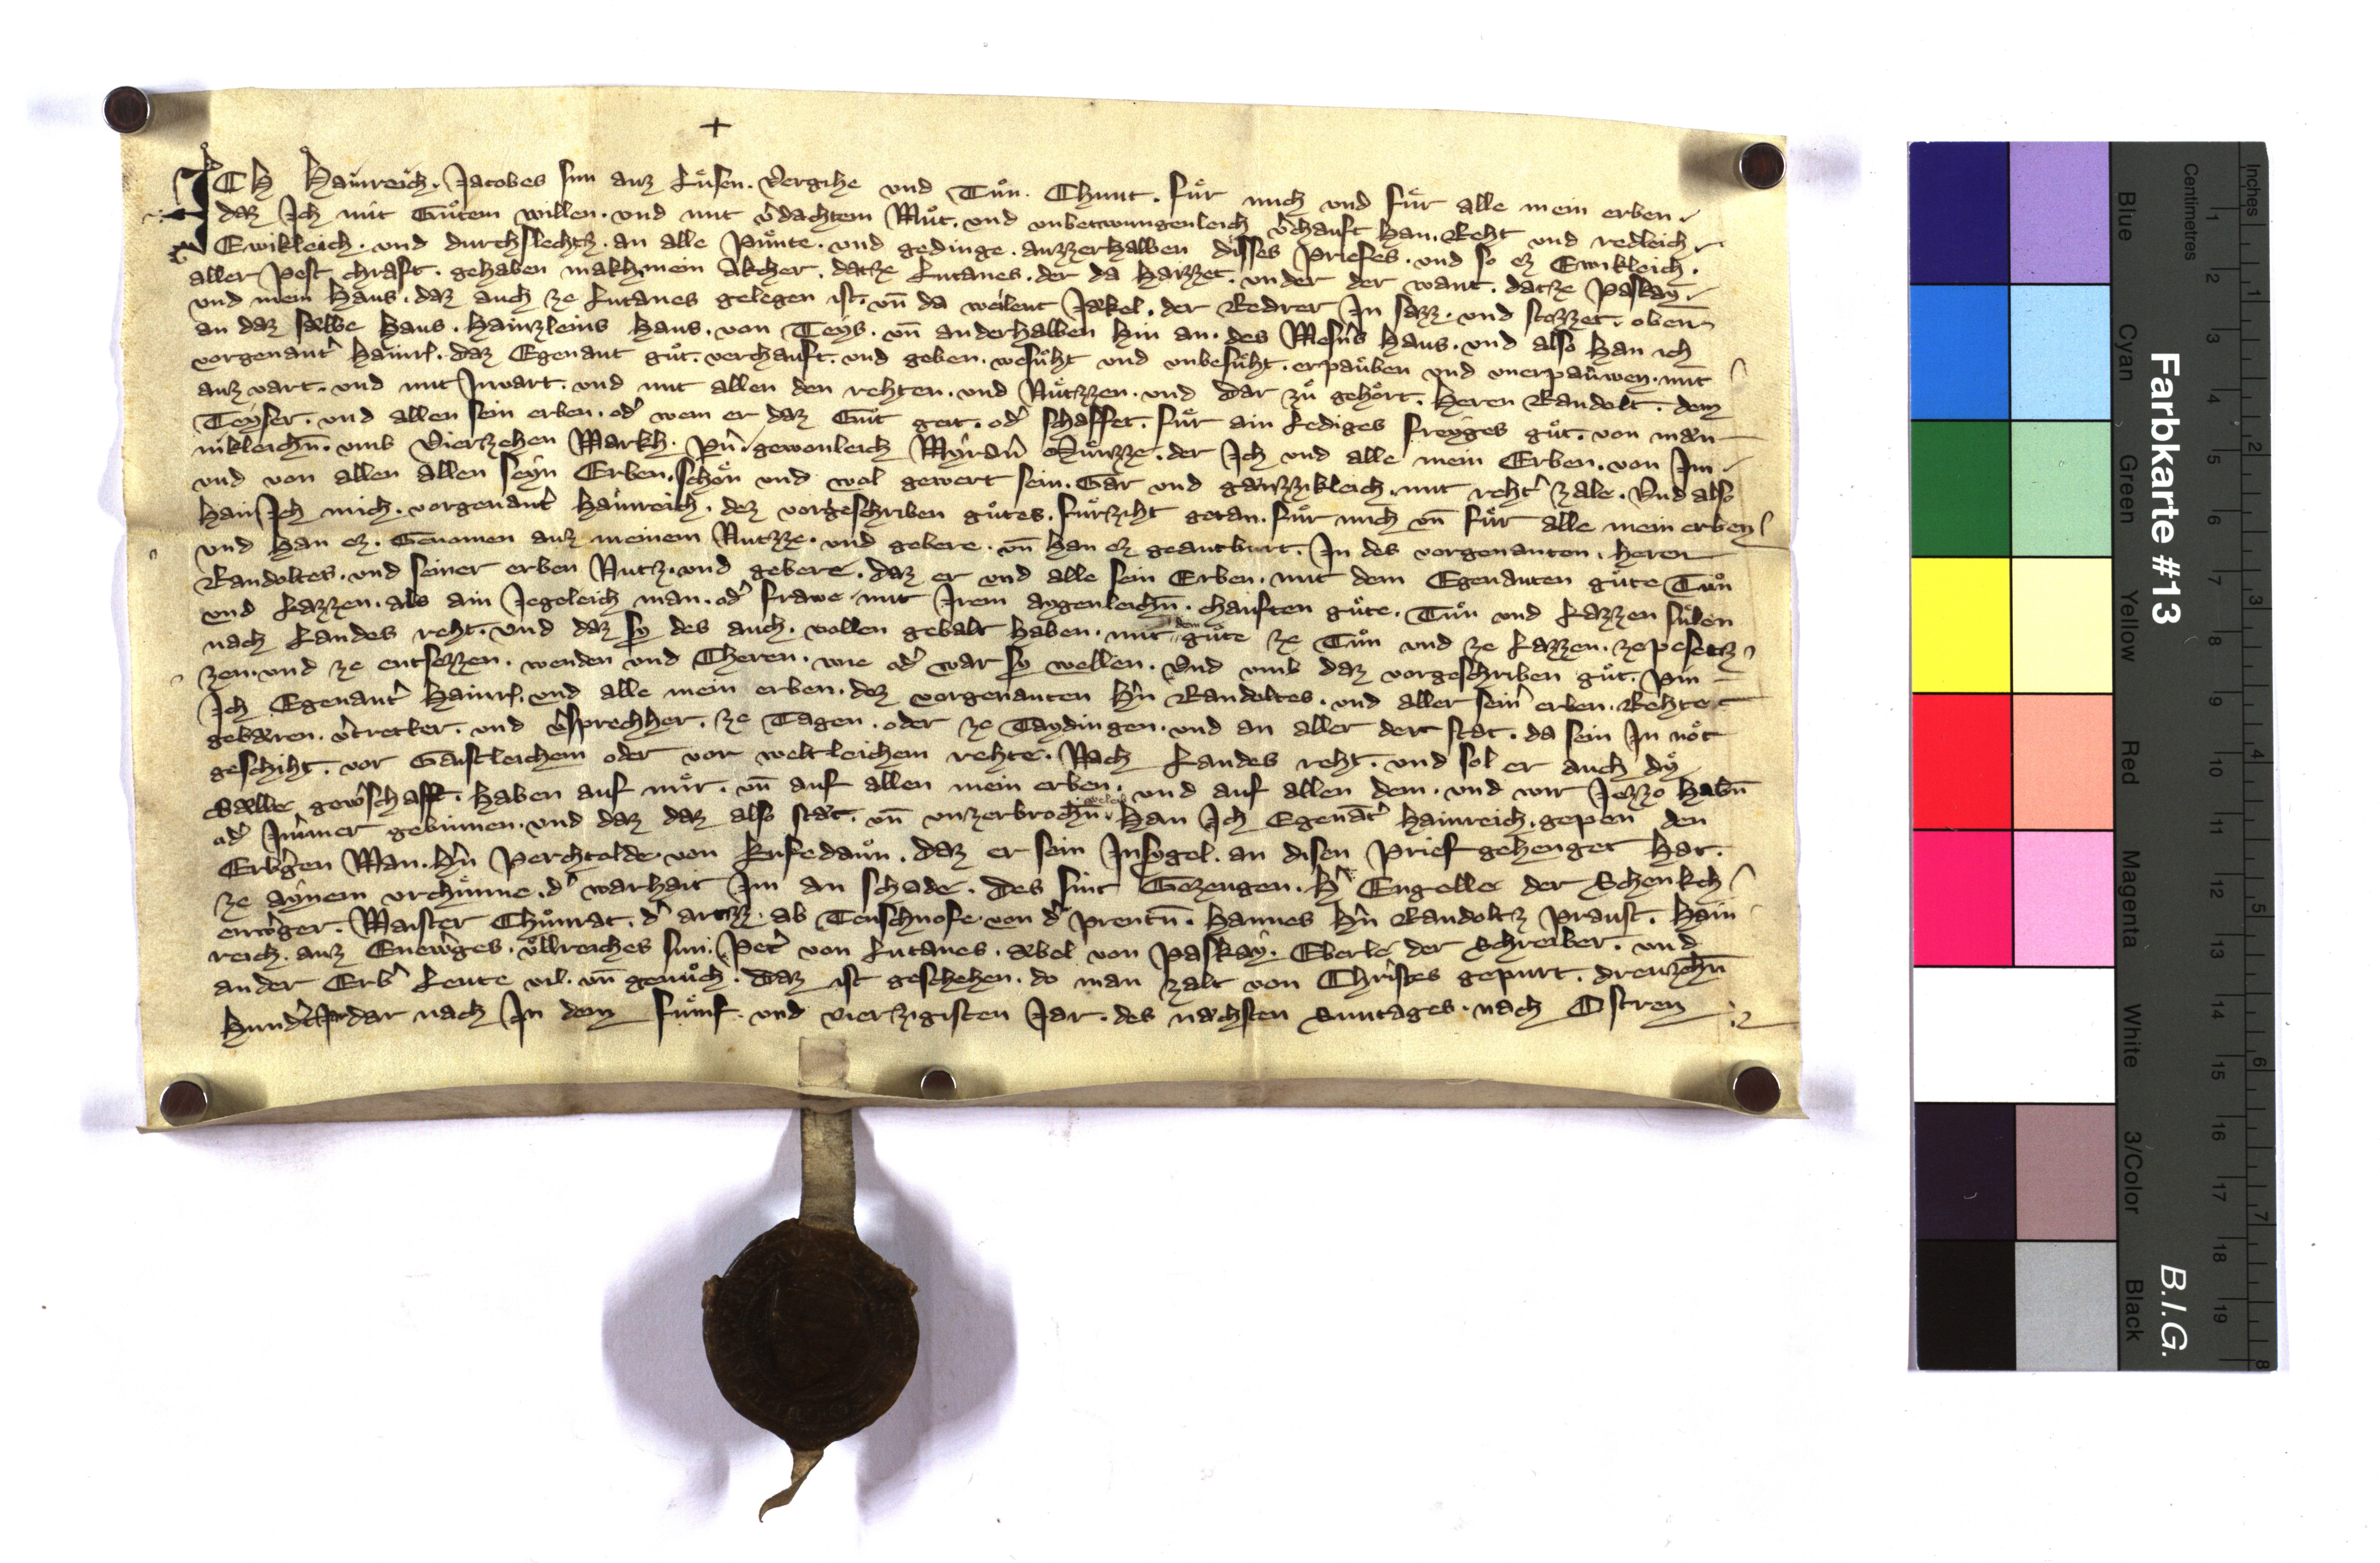 +
ICH Hainreich. Jacobes sun auz Luͤsen. Vergihe vnd Tuͦn. Chunt. fuͤr mich vnd fuͤr alle mein erben.
daz Ich mit Guͦtem willen. vnd mit v̓dachtem Muͦt. vnd vnbetwungenleich v̓chauft han. Reht vnd redleich.
Ewikleich. vnd durchslechtz. an alle Puͤnte. vnd gedinge. auzzerhalben disses Priefes. vnd so ez Ewikleich.
aller pest chraft. gehaben makh, mein Akcher. datze Lutanes. der da haizzet. vnder der want. datze Paskay.
vnd mein haus. daz auch ze Lutanes gelegen ist. vn̄ da weilent Jækel. der Redrer In sazz. vnd stozzet. oben
an daz sælbe haus. hainzleins haus. von Teys. vn̄ anderhalben hin an. des Mesn̓s haus. vnd also han ich
vorgenant̓ hainr. daz Egenant guͦt. verchauft. vnd geben. wesuͤht vnd vnbesuͤht. erpauͤben vnd vnerpauwen. mit
auz vart. vnd mit Inuart. vnd mit allen den rehten. vnd Nuͤtzzen. vnd dar zuͦ gehoͤrt. Heren Randolt. dem
Teyser. vnd allen sein erben. od̓ wem er daz Guͦt geit. od̓ schaffet. fuͤr ain Lediges freyges guͦt. von mæn
nikleichn̄. vmb Vierzehen Markh. Pn̓. gewonleich Myran̓ Muͤnzze. der Ich vnd alle mein Erben. von Im.
vnd von allen allen seyn Erben. schoͤn vnd wol gewert sein. Gar vnd gænzzikleich. mit reht̓ zale. Vnd also
han Ich mich. vorgenant̓ hainreich. dez vorgeschriben guͦtes. fuͤrziht getan. fuͤr mich vn̄ fuͤr alle mein erben
vnd han ez. Genomen auz meinem Nutzze. vnd gebere. vn̄ han ez geantburt. In des vorgenanten. heren
Randoltes. vnd seiner erben Nutz. vnd gebere. daz er vnd alle sein Erben. mit dem Egenanten guͦte Tuͦn
vnd Lazzen. als ain Jegeleich man. od̓ frawe. mit Irem aygenleichn̄. chauften guͦte. Tuͦn vnd Lazzen suͤlen
nach Landes reht. vnd daz sy des auch. vollen gebalt haben. mit dem guͦte ze Tuͦn vnd ze Lazzen. ze pesetz
zen. vnd ze entsezzen. wenden vnd Cheren. wie od̓ war sy wellen. Vnd vmb daz vorgeschriben guͦt. pin
Ich Egenant̓ hainr. vnd alle mein erben. dez vorgenanten hn̓ Randoltes. vnd aller sein̓ erben. Rehte
gebæren. v̓tretter. vnd v̓sprechher. ze Tagen. oder ze Taydingen. vnd an aller der stat. da sein In noͤt
geschiht. vor Gaistleichem oder vor weltleichem rehte. Nach Landes reht. vnd sol er auch dy
Sælbe gew̓schafft. haben auf mir. vn̄ auf allen mein erben. vnd auf allen dem. vnd wir Jezzo habn̄
od̓ Im̓mer gebinnen. vnd daz daz also stæt. vn̄ vnzerbrochn̄ weleib. Han Ich Egenāt̓ hainreich. gepen den
Erb̓gen Man. hn̓ Perchtolde. von Gufedaun. daz er sein Insygel. an disen Prief gehenget hat.
ze aynem vrchuͤnne. d̓ warhait Im an schade. Des sint Gezeugen. h̓ Engelle der Schenkch
enw̓ger. Maister Chuͦnrat. d̓ artzz. ab Teuschnofe. von d̓ Prentn̄. hannes hn̓ Randoltz Praust. Hain
reich. auz Enew̓ges. vͦllreiches sun. Pet̓ von Lutanes. æbel von Paskay. Eberle der Schreiber. vnd
ander Erb̓ Leute vil. vn̄ genuͦch. Daz ist geschehen. do man zalt von Christes gepurt. dreuzehn̄
hund̓t Jar dar nach In dem fuͤmf. vnd vierzigisten Jar. des næhsten Sunntages. nach Ostren
Farbkarte #13
B.I.G.
Centimetres
Inches
Blue
Cyan
Green
Yellow
Red
Magenta
White
3/Color
Black
1 2 3 4 5 6 7 8 9 10 11 12 13 14 15 16 17 18 19
1 2 3 4 5 6 7 8